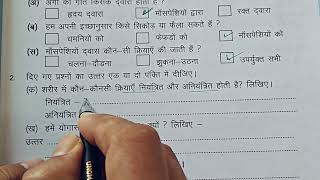 (अ) अंगों की गति किसके द्वारा होती है?
हृदय द्वारा माँसपेशियों द्वारा रक्त द्वारा
(ब) हम अपनी इच्छानुसार किसे सिकोड़ या फैला सकते हैं ?
धमनियों को फेफड़ों को माँसपेशियों को
(स) माँसपेशियों द्वारा कौन-सी क्रियाएँ की जाती हैं ?
चलना-दौड़ना झुकना-उठना उपर्युक्त सभी
2. दिए गए प्रश्नों का उत्तर एक या दो पंक्ति में दीजिए।
(क) शरीर में कौन-कौनसी क्रियाएँ नियंत्रित और अनियंत्रित होती है? लिखिए।
नियंत्रित –
अनियंत्रित
(ख) हमें योगास क्यों ? लिखिए –
उत्तर